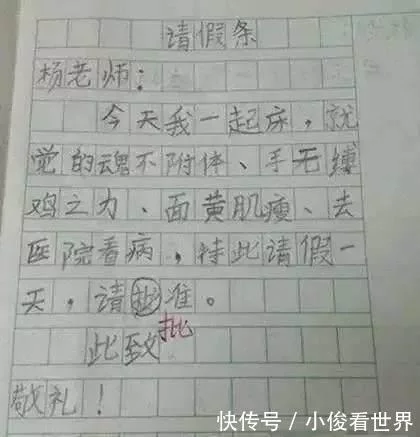 请假条
杨老师：
今天我一起床，就
觉的魂不附体、手无缚
鸡之力、面黄肌瘦、去
医院看病，特此请假一
天，请准。
批
此致
敬礼！
快传号／小俊看世界